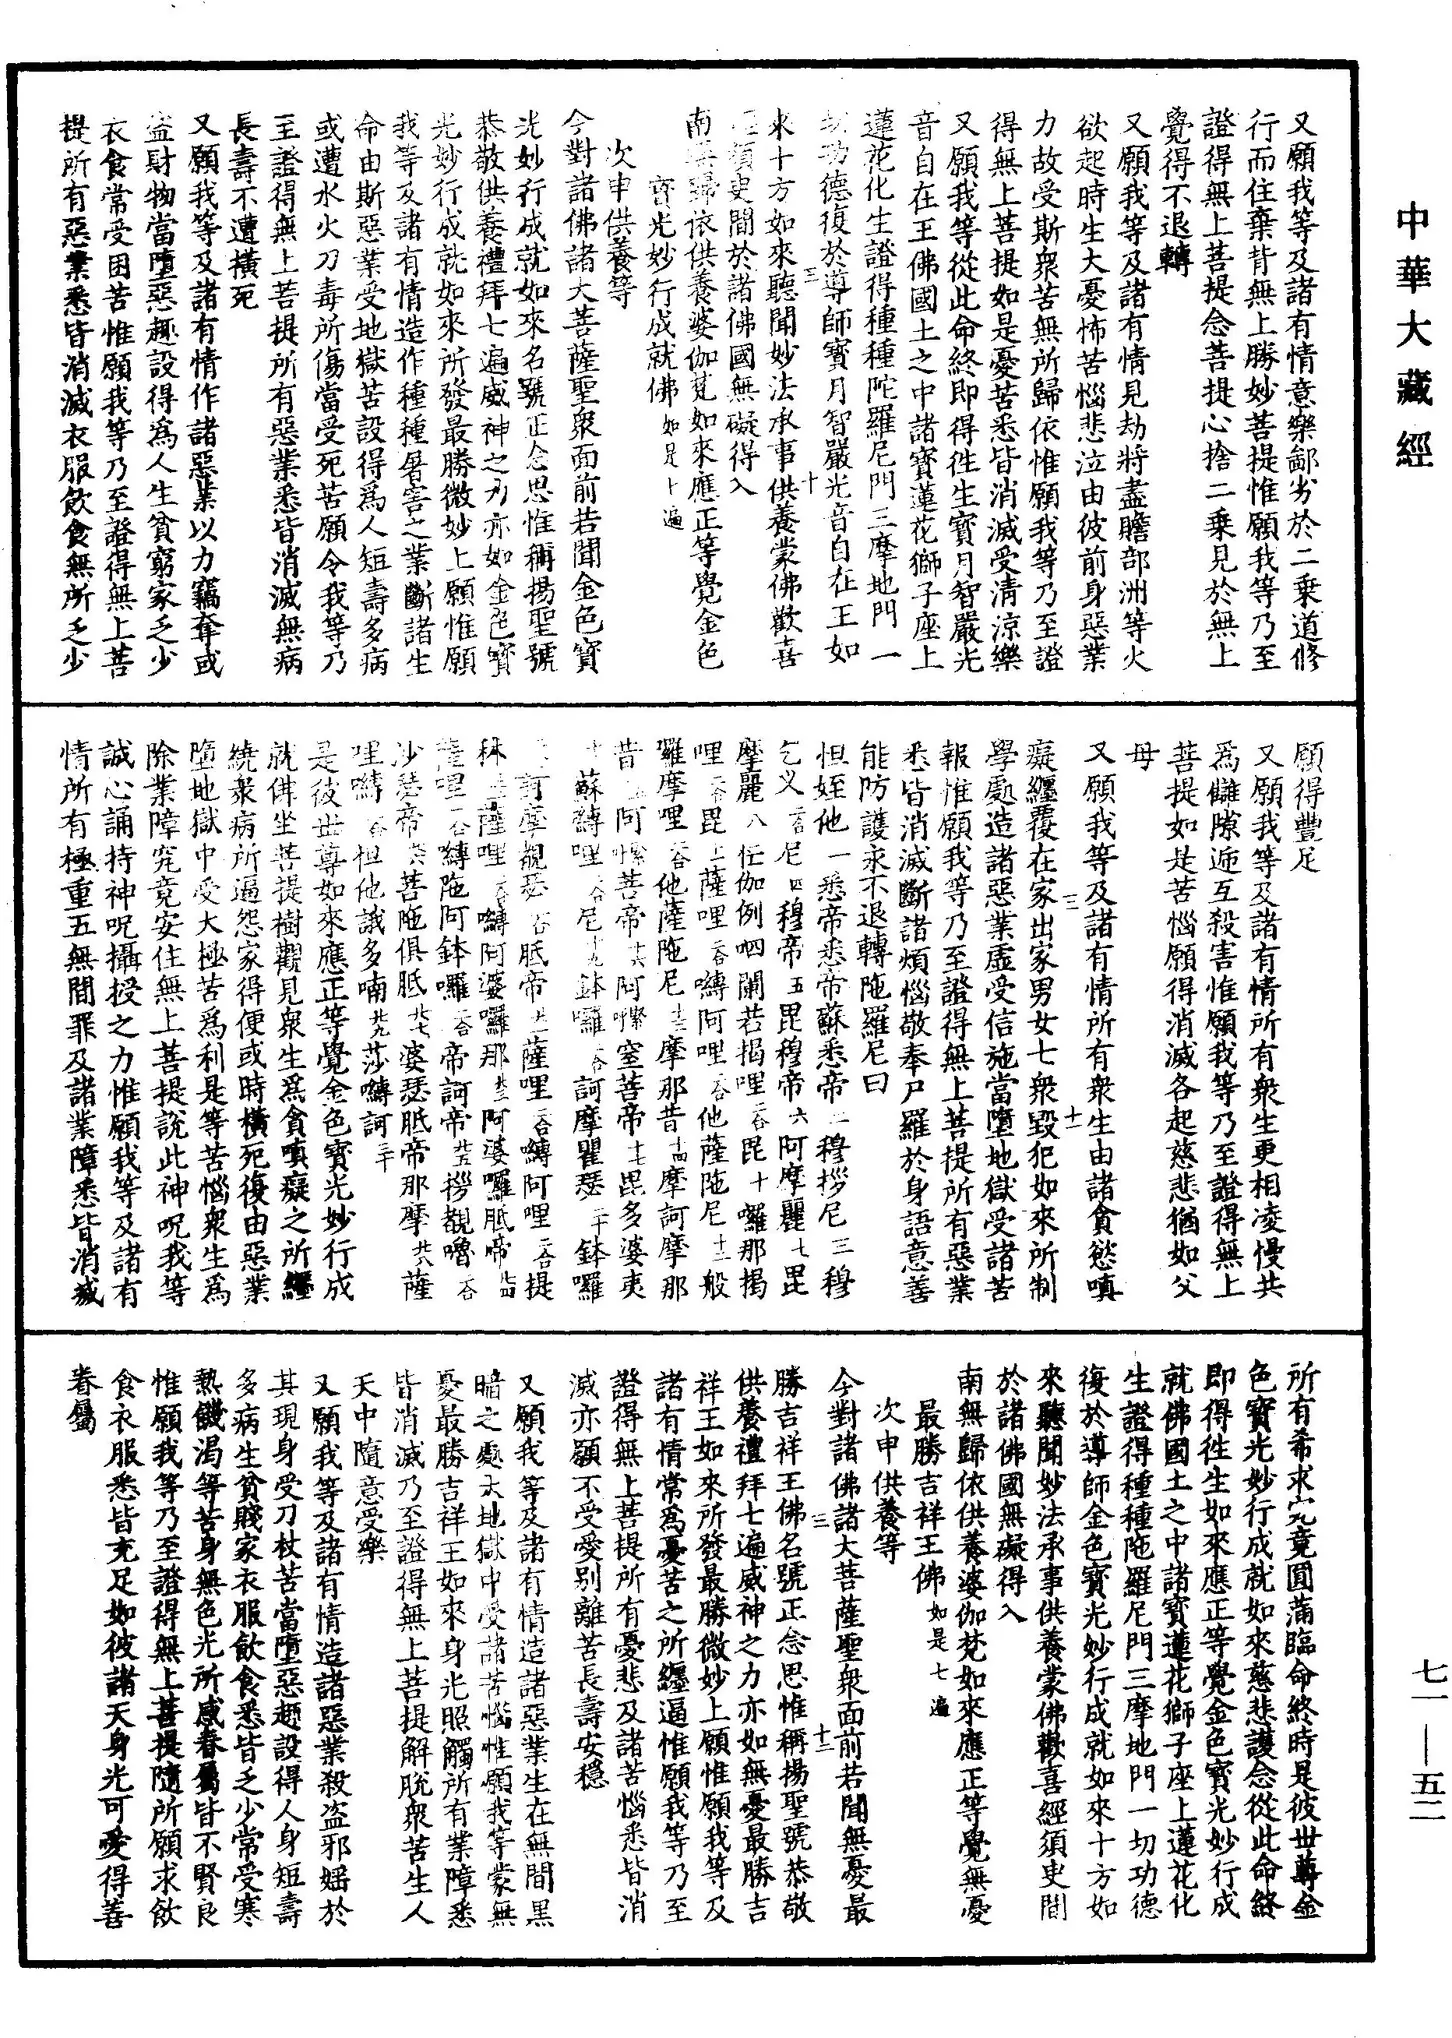 中華大藏經
七一—五二
又願我等及諸有情意樂鄙劣於二乗道修
行而住棄背無上勝妙菩提惟願我等乃至
證得無上菩提念菩提心捨二乗見於無上
覺得不退轉
又願我等及諸有情見劫將盡贍部洲等火
欲起時生大憂怖苦惱悲泣由彼前身惡業
力故受斯衆苦無所歸依惟願我等乃至證
得無上菩提如是憂苦悉皆消滅受清涼樂
又願我等從此命終即得徃生寶月智嚴光
音自在王佛國土之中諸寶蓮花獅子座上
蓮花化生證得種種陀羅尼門三摩地門一
切功德復於導師寶月智嚴光音自在王如
來十方如來聽聞妙法承事供養蒙佛歡喜
經須史間於諸佛國無礙得入
南無歸依供養婆伽梵如來應正等覺金色
寶光妙行成就佛如是十遍
次申供養等
今對諸佛諸大菩薩聖衆面前若聞金色寶
光妙行成就如來名號正念思惟稱揚聖號
恭敬供養禮拜七遍威神之力亦如金色寶
光妙行成就如來所發最勝微妙上願惟願
我等及諸有情造作種種暑害之業斷諸生
命由斯惡業受地獄苦設得爲人短壽多病
或遭水火刀毒所傷當受死苦願令我等乃
至證得無上菩提所有惡業悉皆消滅無病
長壽不遭橫死
又願我等及諸有情作諸惡業以力竊奪或
盜財物當墮惡趣設得爲人生貧窮家乏少
衣食常受困苦惟願我等乃至證得無上菩
提所有惡業悉皆消滅衣服飲食無所乏少
願得豐足
又願我等及諸有情所有衆生更相凌慢共
爲讎隙遞互殺害惟願我等乃至證得無上
菩提如是苦惱願得消滅各起慈悲猶如父
母
又願我等及諸有情所有衆生由諸貪慾嗔
癡纏覆在家出家男女七衆毀犯如來所制
學處造諸惡業虛受信施當墮地獄受諸苦
報惟願我等乃至證得無上菩提所有惡業
悉皆消滅斷諸煩惱敬奉尸羅於身語意善
能防護永不退轉陁羅尼曰
怛姪他一悉帝悉帝蘇悉帝二穆拶尼三穆
乞义二合尼四穆帝五毘穆帝六阿摩麗七毘
摩麗八任伽例呬闌若揭哩二合毘十囉那揭
哩二合毘上薩哩二合嚩阿哩二合他薩陁尼十二般
羅摩哩二合他薩陁尼十三摩那昔十四摩訶摩那
昔阿愫菩帝十六阿愫室菩帝十七毘多婆夷
蘇嚩哩二合尼十九鉢囉二合訶摩瞿瑟二十鉢囉
訶摩覩瑟二合胝帝廿一薩哩二合嚩阿哩二合提
秫薩哩二合嚩阿婆囉那廿三阿婆囉胝帝廿四
薩哩二合嚩陁阿鉢囉二合帝訶帝廿五拶覩嚕二合
沙瑟帝菩陁俱胝廿七婆瑟胝帝那摩廿八薩
哩嚩二合怛他誐多喃廿九莎嚩訶三十
是彼世尊如來應正等覺金色寶光妙行成
就佛坐菩提樹觀見衆生爲貪嗔癡之所纏
繞衆病所逼怨家得便或時橫死復由惡業
墮地獄中受大極苦爲利是等苦惱衆生爲
除業障究竟安住無上菩提說此神呪我等
誠心誦持神呪攝授之力惟願我等及諸有
情所有極重五無間罪及諸業障悉皆消滅
所有希求究竟圓蒲臨命終時是彼世尊金
色寶光妙行成就如來慈悲護念從此命終
即得徃生如來應正等覺金色寶光妙行成
就佛國土之中諸寶蓮花獅子座上蓮花化
生證得種種陁羅尼門三摩地門一切功德
復於導師金色寶光妙行成就如來十方如
來聽聞妙法承事供養蒙佛歡喜經須史間
於諸佛國無礙得入
南無歸依供養婆伽梵如來應正等覺無憂
最勝吉祥王佛如是七遍
次申供養等
今對諸佛諸大菩薩聖衆面前若聞無憂最
勝吉祥王佛名號正念思惟稱揚聖號恭敬
供養禮拜七遍威神之力亦如無憂最勝吉
祥王如來所發最勝微妙上願惟願我等及
諸有情常爲憂苦之所纏逼惟願我等乃至
證得無上菩提所有憂悲及諸苦惱悉皆消
滅亦願不受愛别離苦長壽安穩
又願我等及諸有情造諸惡業生在無間黑
暗之處大地獄中受諸苦惱惟願我等蒙無
憂最勝吉祥王如來身光照觸所有業障悉
皆消滅乃至證得無上菩提解脫衆苦生人
天中隨意受樂
又願我等及諸有情造諸惡業殺盗邪婬於
其現身受刀杖苦當墮惡趣設得人身短壽
多病生貧賤家衣服飲食悉皆乏少常受寒
熱饑渴等苦身無色光所感眷屬皆不賢良
惟願我等乃至證得無上菩提隨所願求飲
食衣服悉皆充足如彼諸天身光可愛得善
眷屬